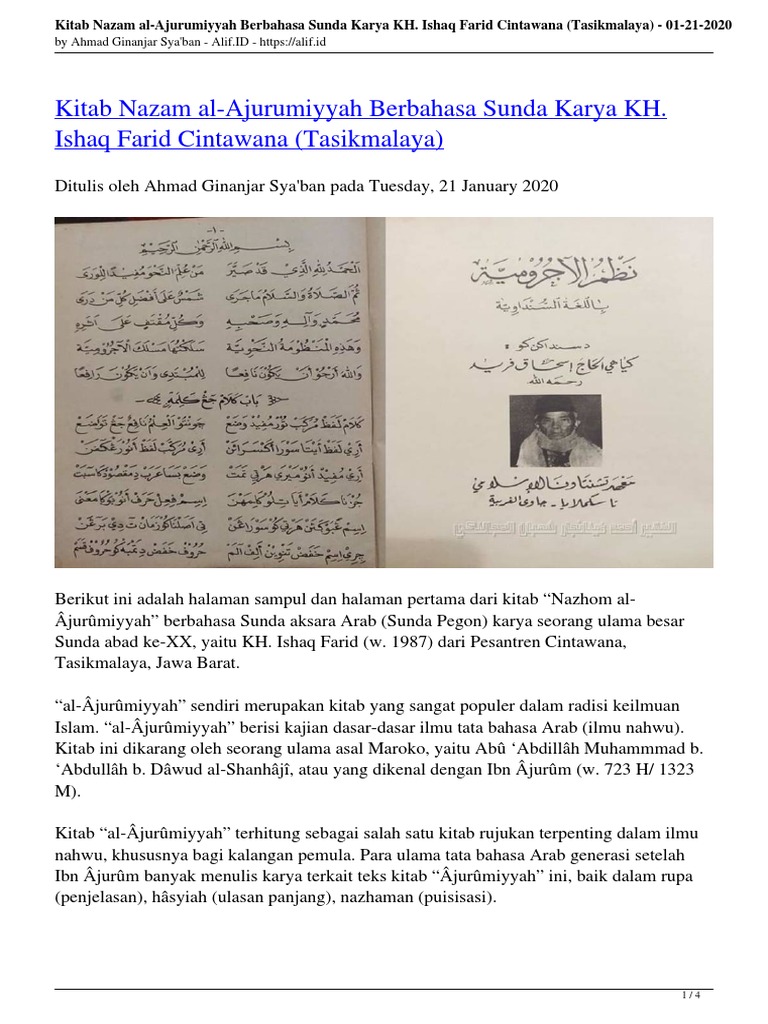 Kitab Nazam al-Ajurumiyyah Berbahasa Sunda Karya KH. Ishaq Farid Cintawana (Tasikmalaya) - 01-21-2020
by Ahmad Ginanjar Sya'ban - Alif.ID - https://alif.id
Kitab Nazam al-Ajurumiyyah Berbahasa Sunda Karya KH.
Ishaq Farid Cintawana (Tasikmalaya)
Ditulis oleh Ahmad Ginanjar Sya'ban pada Tuesday, 21 January 2020
-١-
بِسْمِ اللهِ الرَّحْمٰنِ الرَّحِيْمِ
اَلْحَمْدُ لِلّٰهِ الَّذِيْ قَدْ صَيَّرَ مَنْ عَلِمَ النَّحْوَ مُفِيْدًا لِلْوَرَى
ثُمَّ الصَّلَاةُ وَالسَّلَامُ مَاجَرَى شَمْسٌ عَلَى اَفْضَلِ كُلِّ مَنْ دَرَى
مُحَمَّدٍ وَآلِهِ وَصَحْبِهِ وَكُلِّ مُقْتَفٍ عَلَى اَثَرِهِ
وَهٰذِهِ الْمَنْظُوْمَةُ النَّحْوِيَّةْ سَلَكْتُهَا مَسْلَكَ الْآجُرُوْمِيَّةْ
وَاللهَ اَرْجُوْ اَنْ يَكُوْنَ نَافِعًا لِلْمُبْتَدِى وَاَنْ يَكُوْنَ رَافِعًا
باب كلام جع كلمه
كَلَامْ لَفَظْ مُرَكَّبْ مُفِيْدْ وَضَعْ
نظم الآجرومية
باللغة السنداوية
كياهي الحاج إسحاق فريد
رحمه الله
معهد تشنتاوانا الإسلامي
تاسكملايا - جاوى الغربية
Berikut ini adalah halaman sampul dan halaman pertama dari kitab “Nazhom al-
Âjurûmiyyah” berbahasa Sunda aksara Arab (Sunda Pegon) karya seorang ulama besar
Sunda abad ke-XX, yaitu KH. Ishaq Farid (w. 1987) dari Pesantren Cintawana,
Tasikmalaya, Jawa Barat.
“al-Âjurûmiyyah” sendiri merupakan kitab yang sangat populer dalam radisi keilmuan
Islam. “al-Âjurûmiyyah” berisi kajian dasar-dasar ilmu tata bahasa Arab (ilmu nahwu).
Kitab ini dikarang oleh seorang ulama asal Maroko, yaitu Abû ‘Abdillâh Muhammmad b.
‘Abdullâh b. Dâwud al-Shanhâjî, atau yang dikenal dengan Ibn Âjurûm (w. 723 H/ 1323
M).
Kitab “al-Âjurûmiyyah” terhitung sebagai salah satu kitab rujukan terpenting dalam ilmu
nahwu, khususnya bagi kalangan pemula. Para ulama tata bahasa Arab generasi setelah
Ibn Âjurûm banyak menulis karya terkait teks kitab “Âjurûmiyyah” ini, baik dalam rupa
(penjelasan), hâsyiah (ulasan panjang), nazhaman (puisisasi).
1 / 4